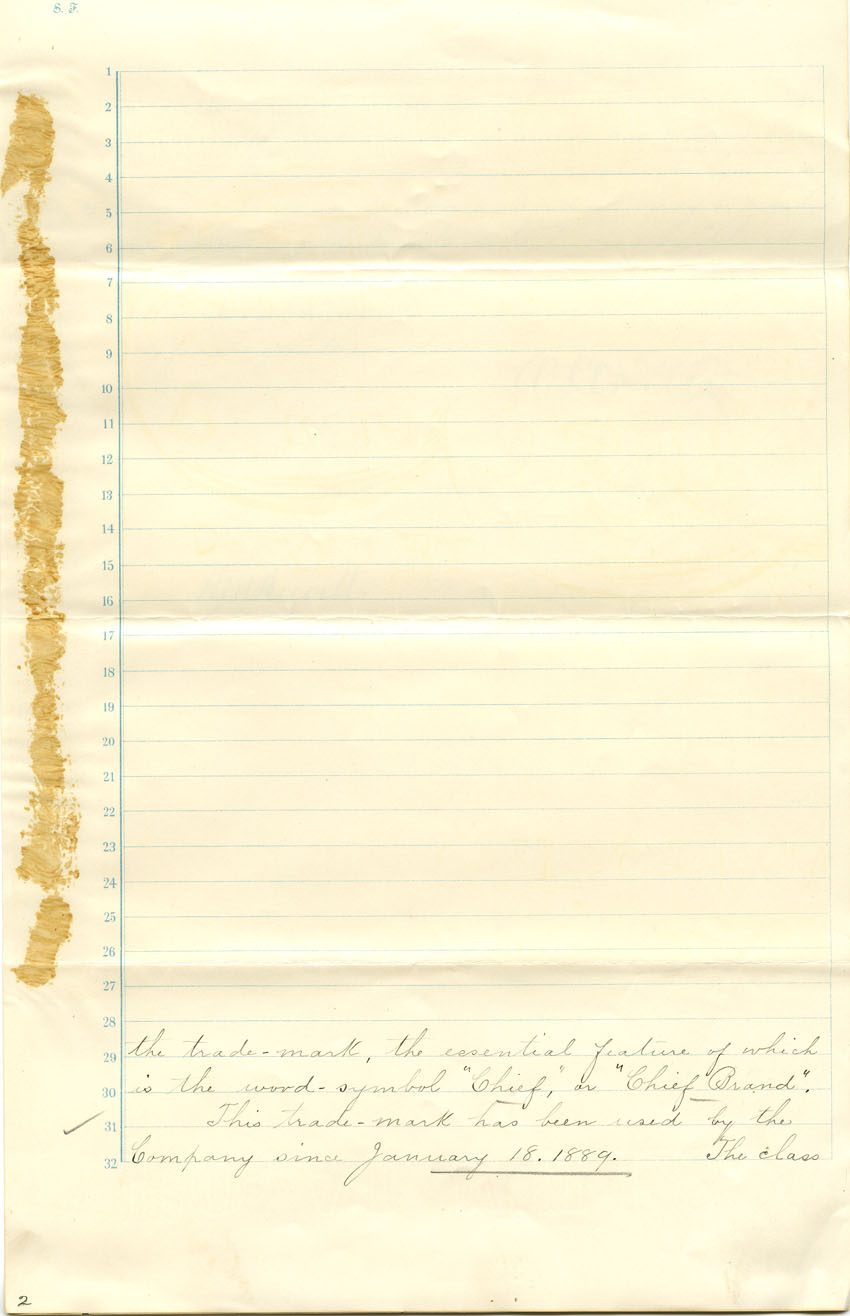 S. F.
1
2
3
4
5
6
7
8
9
10
11
12
13
14
15
16
17
18
19
20
21
22
23
24
25
26
27
28
29 the trade-mark, the essential feature of which
30 is the word-symbol "Chief," or "Chief Brand".
31 This trade-mark has been used by the
32 Company since January 18. 1889. The class
2